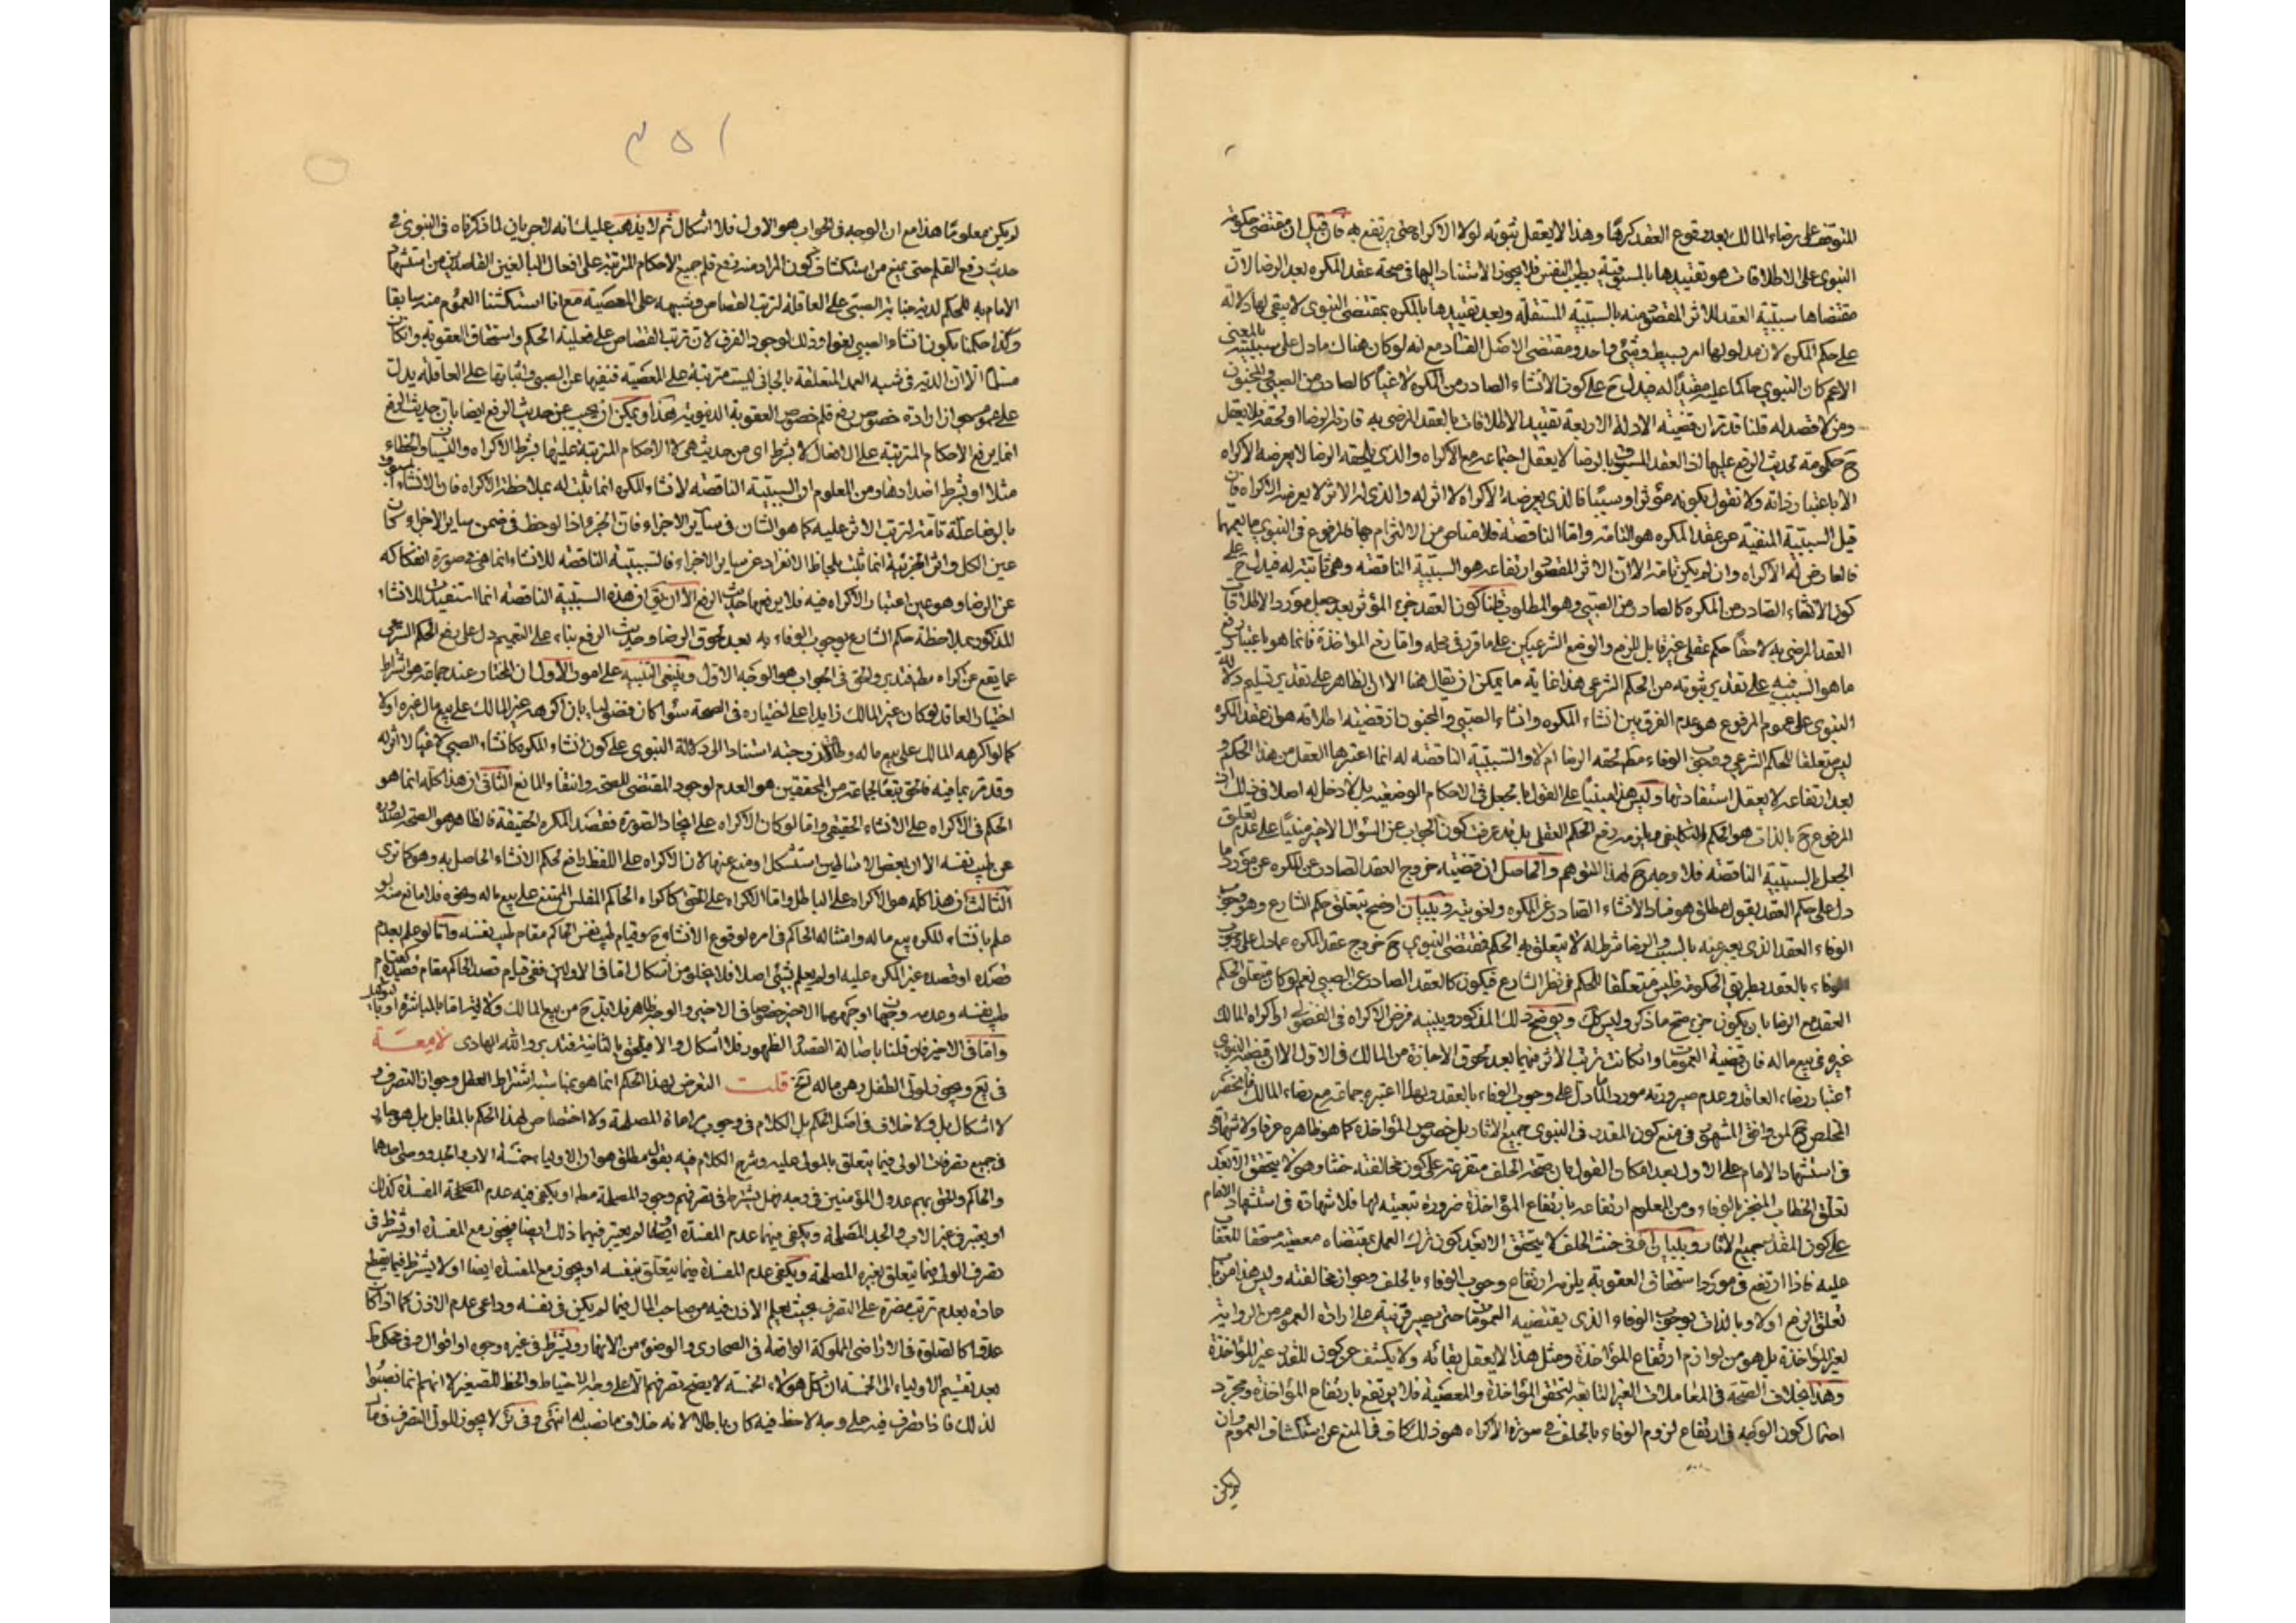 المتوقف على رضاء المالك بعد وقوع العقد كرها وهذا لا يعقل ثبوته لولا الاكراه حتى يرتفع به فان قيل ان مقتضى حكومة
النبوى على الاطلاقات هو تقييدها بالمسبوقية بطيب النفس فلا يجوز الاستناد اليها فى صحة عقد المكره بعد الرضا لان
مقتضاها سببية العقد للاثر المقصود منه بالسببية المستقلة وبعد تقييدها بالمكره بمقتضى النبوى لا يبقى لها دلالة
على حكم المكره لان مدلولها امر بسيط وشئ واحد ومقتضى الاصل الفساد مع انه لو كان هناك ما دل على سببيته بالمعنى
الاعم كان النبوي حاكما عليه مقيدا له فيدل ح على كون الانشاء الصادر من المكره لاغيا كالصادر من الصبي والمجنون
ومن لا قصد له قلنا قد مر ان قضية الادلة الاربعة تقييد الاطلاقات بالعقد المرضى به قارنه الرضا او لحقه فلا يعقل
ح حكومة لحديث الرفع عليها اذ العقد المسبوق بالرضا لا يعقل اجتماعه مع الاكراه والذى يلحقه الرضا لا يعرضه الاكراه
الا باعتبار ذاته ولا نقول بكونه مؤثرا وسببا فالذى يعرضه الاكراه لا اثر له والذى له الاثر لا يعرضه الاكراه فان
قيل السببية المنفية عن عقد المكره هو التامة واما الناقصة فلا مناص من الالتزام بها فالمرفوع فى النبوي ما يعمها
فالعارض له الاكراه وان لم يكن تامة الا ان الاثر المقصود ارتفاعه هو السببية الناقصة وهى ثابتة له فيدل ح على
كون الانشاء الصادر من المكره كالصادر من الصبي وهو المطلوب قلنا كون العقد جزء المؤثر بعد جعل مورد الاطلاقات
العقد المرضى به لاحقا حكم عقلى غير قابل للرفع والوضع الشرعيين على ما قرر فى محله واما رفع المؤاخذة فانما هو باعتبار رفع
ما هو السبب فيه على تقدير ثبوته من الحكم الشرعى هذا غاية ما يمكن ان يقال هنا الا ان الظاهر على تقدير تسليم دلالة
النبوى على عموم المرفوع هو عدم الفرق بين انشاء المكره وانشاء الصبي والمجنون اذ قضية اطلاقه هو ان عقد المكره
ليس متعلقا للحكم الشرعى ووجوب الوفاء مطم لحقه الرضا ام لا والسببية الناقصة له انما اعتبرها العقل من هذا الحكم و
بعد ارتفاعه لا يعقل استفادتها وليس هذا مبنيا على القول بالجعل فى الاحكام الوضعية بل لا دخل له اصلا فى ذلك لان
المرفوع ح بالذات هو الحكم التكليفى ويلزمه رفع الحكم العقلى بل قد عرفت كون الجواب عن السؤال الاخير مبنيا على عدم تعلق
الجعل بالسببية الناقصة فلا وجه ح لهذا التوهم والحاصل ان قضيته خروج العقد الصادر عن المكره عن مورد ما
دل على حكم العقد بقول مطلق هو فساد الانشاء الصادر عن المكره ولغويته وببيان اوضح يتعلق حكم الشارع وهو وجوب
الوفاء العقد الذى يعبر عنه بالسبب والرضا شرط له لا يتعلق به الحكم فمقتضى النبوي ح خروج عقد المكره عما دل على وجوب
الوفاء بالعقد بطريق الحكومة فليس متعلقا للحكم فى نظر الشارع فيكون كالعقد الصادر عن الصبي نعم لو كان متعلق الحكم
العقد مع الرضا بان يكون جزء صح ما ذكر وليس كك ويوضح ذلك المذكور ويبينه فرض الاكراه فى الفضولى او اكراه المالك
غيره فى بيع ماله فان قضية العموما وان كانت ترتب الاثر فيهما بعد لحوق الاجازة من المالك فى الاول الا ان قضية النبوي
اعتبار رضاء العاقد وعدم صيرورته مورد الما دل على وجوب الوفاء بالعقد وبهذا اعتبره جماعة مع رضاء المالك فانحصر
المخلص ح لمن وافق المشهور فى منع كون المقدر فى النبوى جميع الاثار بل خصوص المؤاخذة كما هو ظاهره عرفا ولا شهادة
فى استشهاد الامام على الاول بعد امكان القول بان صحة الحلف متفرعة على كون مخالفته حنثا وهو لا يتحقق الا بعد
تعلق الخطاب المنجز بالوفاء ومن المعلوم ارتفاعه بارتفاع المؤاخذة ضرورة تبعيته لها فلا شهادة فى استشهاد الامام
على كون المقدر جميع الاثار وببيان اخر فى حنث الحلف لا يتحقق الا بعد كون ترك العمل بمقتضاه معصية مستحقا للعقاب
عليه فاذا ارتفع فى مورد استحقاق العقوبة يلزمه ارتفاع وجوب الوفاء بالحلف وجواز مخالفته وليس هذا من باب
تعلق الرفع اولا وبالذات بوجوب الوفاء الذى يقتضيه العموما حتى يصير قرينة على ارادة العموم من الرواية
لغير المؤاخذة بل هو من لوازم ارتفاع المؤاخذة ومثل هذا لا يعقل بقائه ولا يكشف عن كون المقدر غير المؤاخذة
وهذا بخلاف الصحة فى المعاملات الغير التابعة لتحقق المؤاخذة والمعصية فلا يرتفع بارتفاع المؤاخذة ومجرد
احتمال كون الوجه فى ارتفاع لزوم الوفاء بالحلف فى صورة الاكراه هو ذلك كاف فى المنع عن استكشاف العموم وان
لم يكن
٣٥١
لم يكن معلوما هذا مع ان الوجه فى الجواب هو الاول فلا اشكال ثم لا يذهب عليك انه لا جريان لما ذكرناه فى النبوى فى
حديث رفع القلم حتى يمنع من استكشاف كون المراد منه رفع قلم جميع الاحكام المترتبة على افعال البالغين القاصدين من استشهاد
الامام به للحكم لدية جناية الصبى على العاقلة لترتب القصاص وشبهه على المعصية مع انا استكشفنا العموم منه سابقا
وكذا حكمنا بكون انشاء الصبي لغوا وذلك لوجود الفرق لان ترتب القصاص على فعلية الحكم واستحقاق العقوبة وان كان
مسلما الا ان الدية فى شبيه العمد المتعلقة بالجانى ليست مترتبة على المعصية فنفيها عن الصبى واثباتها على العاقلة يدل
على عموم ازادة خصوص رفع قلم خصوص العقوبة الدنيوية هذا ويمكن ان يجيب عن حديث الرفع ايضا بان حديث الرفع
انما يرفع الاحكام المترتبة على الافعال لا بشرط اى من حيث هى لا الاحكام المترتبة عليها بشرط الاكراه والنسيان والخطاء
مثلا او بشرط اضدادها ومن المعلوم ان السببية الناقصة لانشاء المكره انما ثبت له بملاحظة الاكراه فان الانشاء المسبوق
بالرضا علة تامة لترتب الاثر عليه كما هو الشان فى سائر الاجزاء فان الجزء اذا لوحظ فى ضمن ساير الاجزاء كان
عين الكل واثر الجزئية انما ثبت بلحاظ الانفراد عن ساير الاجزاء فالسببية الناقصة للانشاء انما هى فى صورة انفكاكه
عن الرضا وهو عين اعتبار الاكراه فيه فلا يرفعها حديث الرفع الا ان يقال ان هذه السببية الناقصة انما استفيدت للانشاء
المذكور بملاحظة حكم الشارع بوجوب الوفاء به بعد لحوق الرضا وحديث الرفع بناء على التعميم دل على رفع الحكم الشرعى
عما يقع عن اكراه مطم فتدبر والحق فى الجواب هو الوجه الاول وينبغى التنبيه على امور الاول ان المختار عند جماعة هو اشتراط
اختيار العاقد لو كان غير المالك زايدا على اختياره فى الصحة سواء كان فضوليا بان اكرهه غير المالك على بيع مال غيره اولا
كما لو اكرهه المالك على بيع ماله استنادا الى دلالة النبوى على كون انشاء المكره كانشاء الصبى لاغيا لا اثر له
وقد مر ما فيه فالحق تبعا لجماعة من المحققين هو العدم لوجود المقتضى للصحة وانتفاء المانع الثانى ان هذا كله انما هو
الحكم فى الاكراه على الانشاء الحقيقى واما لو كان الاكراه على ايجاد الصورة فقصد المكره الحقيقة فالظاهر هو الصحة لصدوره
عن طيب نفسه الا ان بعض الاساطين استشكل او منع عنها لان الاكراه على اللفظ رافع لحكم الانشاء الحاصل به وهو كما ترى
الثالث ان هذا كله هو الاكراه على الباطل واما الاكراه على الحق كاكراه الحاكم المفلس الممتنع على بيع ماله ونحوه فلا مانع منه لو
علم بانشاء المكره بيع ماله وامتثاله الحاكم فى امره لوقوع الانشاء وقيام طيب نفس الحاكم مقام طيب نفسه واما لو علم بعدم
قصده او قصده غير المكره عليه او لم يعلم بشئ اصلا فلا يخلو من اشكال اما فى الاولين ففى قيام قصد الحاكم مقام قصده كقيام
طيب نفسه وعدمه وجهان اوجههما الاخير خصوصا فى الاخير والوجه ظاهر فلا بد ح من بيع المالك ولاية اما بالمباشرة او بالتوكيل
واما فى الاخير فان قلنا باصالة القصد او الظهور فلا اشكال والا فيلحق بالثانية فتدبر والله الهادى لامعة
فى يع ويجوز لولى الطفل رهن ماله الخ قلت التعرض لهذا الحكم انما هو بمناسبة اشتراط العقل وجواز التصرف و
لا اشكال بل ولا خلاف فى اصل الحكم بل الكلام فى وجوب مراعاة المصلحة ولا اختصاص لهذا الحكم بالمقابل بل هو جار
فى جميع تصرفات الولى فيما يتعلق بالمولى عليه وشرح الكلام فيه بقول مطلق هو ان الاولياء خمسة الاب والجد ووصى احدهما
والحاكم والحق بهم عدول المؤمنين فى وجه فهل يشترط فى تصرفهم وجود المصلحة مطم او يكفى فيه عدم المصلحة المفسدة كذلك
او يعتبر فى غير الاب والجد المصلحة ويكفى فيهما عدم المفسدة او لم يعتبر فيهما ذلك ايضا فيجوز مع المفسدة او يشترط فى
تصرف الولى فيما يتعلق بغيره المصلحة ويكفى عدم المفسدة فيما يتعلق بنفسه او يجوز مع المفسدة ايضا او لا يشترط فيما يقطع
عادة بعدم ترتب مضرة على التصرف بحيث يعلم الاذن فيه من صاحب المال فيما لم يكن فى نفسه وداعى عدم الاذن كما اذا كان
عدوا كالصلوة فى الاراضى المملوكة الواقعة فى الصحارى والوضوء من الانهار ويشترط فى غيره وجوه او اقوال
بعد تقسيم الاولياء الى الخمسة ان كل هؤلاء الخمسة لا يصح تصرفهم الا على وجه الاحتياط والحظ للصغير لانهم انما نصبوا
لذلك فاذا تصرف فيه على وجه لا حظ فيه كان باطلا لانه خلاف ما نصب له انتهى وفى ئر لا يجوز للولى التصرف فى مال